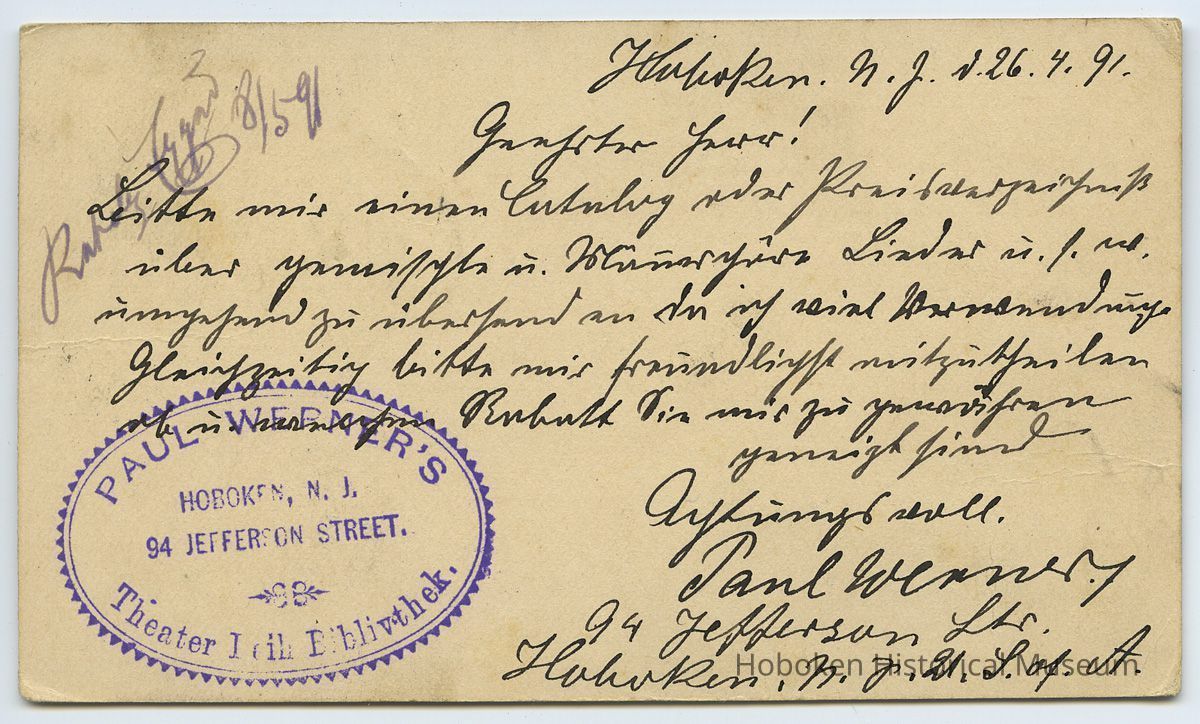 Hoboken. N. J. d. 26. 4. 91.
8/5 91
Geehrter Herr!
Bitte mir einen Catalog oder Preisverzeichniß
über gemischte u. Männerchöre Lieder u. s. w.
umgehend zu übersenden da ich viel Verwendung.
Gleichzeitig bitte mir freundlichst mitzutheilen
ob u. welchen Rabatt Sie mir zu gewähren
geneigt sind
Achtungsvoll.
Paul Werner
94 Jefferson Str.
Hoboken. N. J. U. S. of A.
PAUL WERNER'S
HOBOKEN, N. J.
94 JEFFERSON STREET.
Theater Leih Bibliothek.
Hoboken Historical Museum